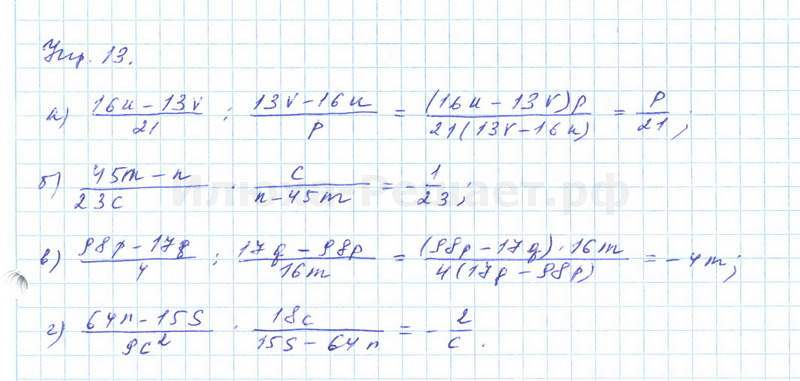 Упр. 13.
а) (16u - 13v)/21 : (13v - 16u)/p = ((16u - 13v)p)/(21(13v - 16u)) = p/21;
б) (45m - n)/(23c) · c/(n - 45m) = - 1/23;
в) (98p - 17q)/4 : (17q - 98p)/(16m) = ((98p - 17q)·16m)/(4(17q - 98p)) = - 4m;
г) (64n - 15s)/(9c²) · 18c/(15s - 64n) = - 2/c.
Илюха-Решает.рф